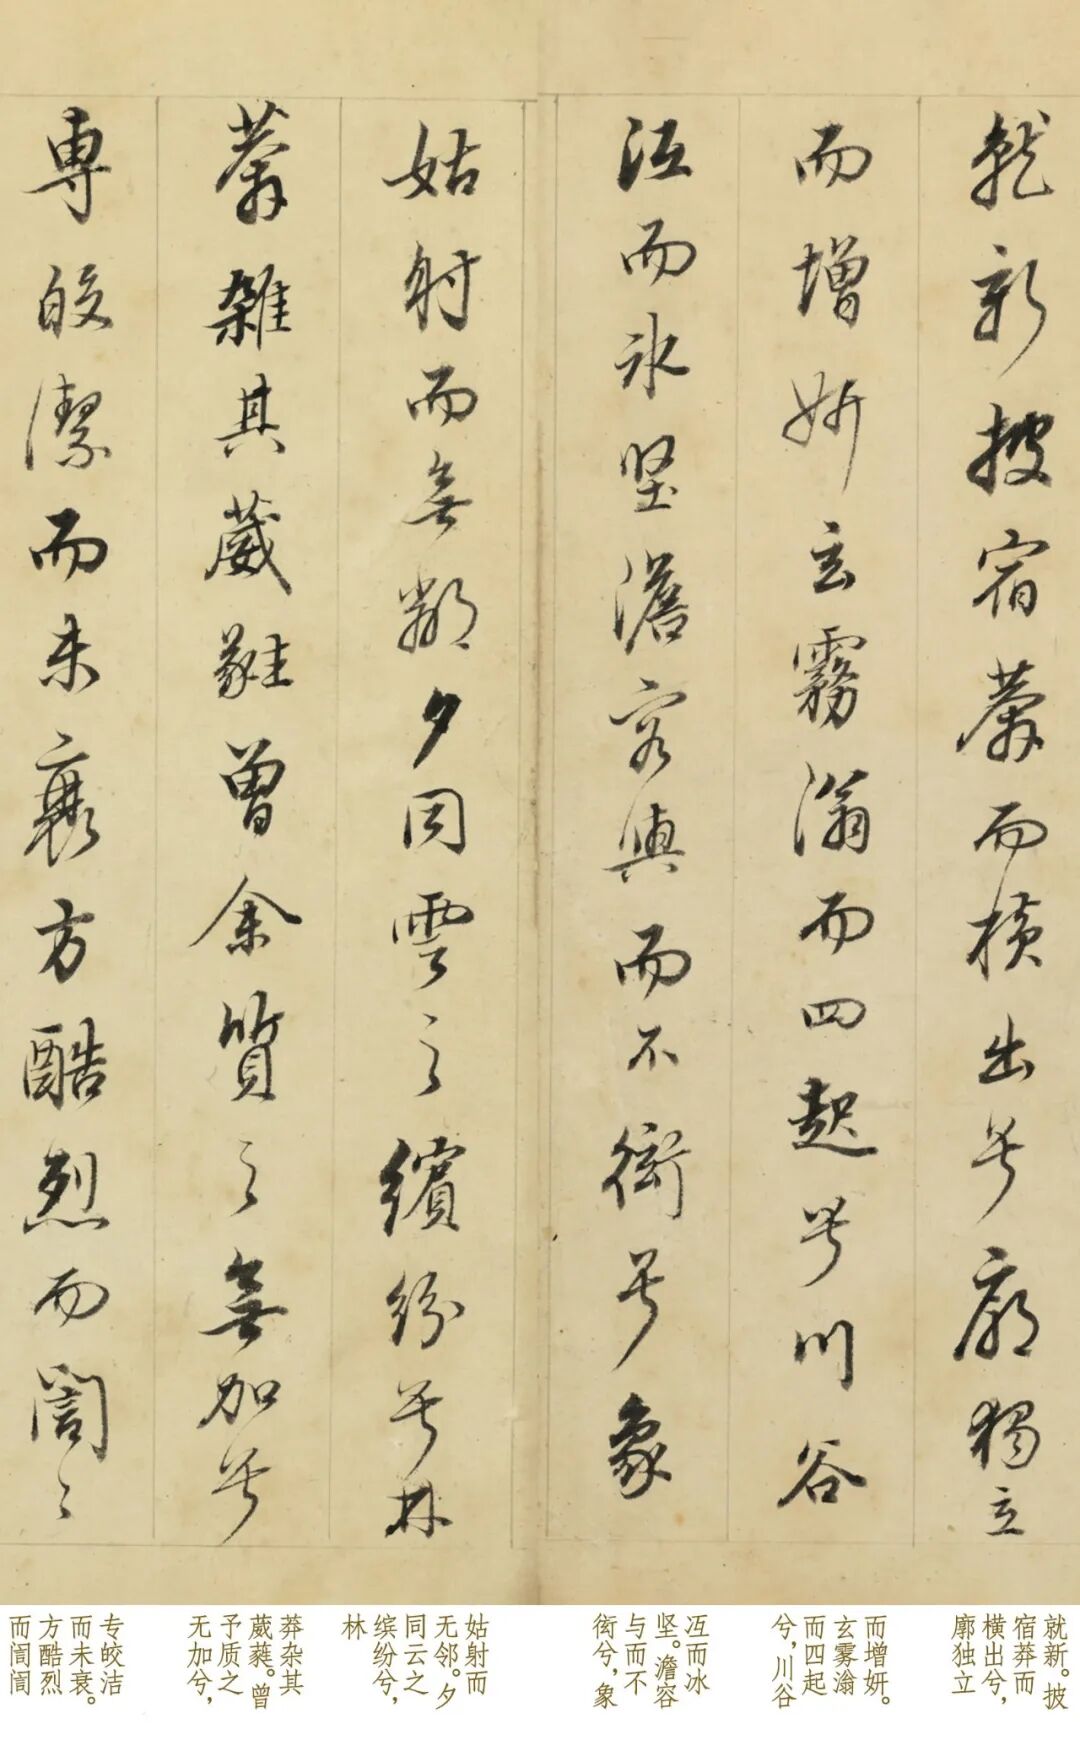 就新披宿莽而橫出兮廓獨立
而增妍玄霧滃而四起兮川谷
沍而氷堅澹容與而不衒兮象
姑射而無鄰夕同雲之繽紛兮林
莽雜其葳蕤曾余質之無加兮
專皎潔而未衰方酷烈而誾々
就新。披
宿莽而
横出兮，
廓独立
而增妍。
玄雾滃
而四起
兮，川谷
冱而冰
坚。澹容
与而不
衒兮，象
姑射而
无邻。夕
同云之
缤纷兮，
林
莽杂其
葳蕤。曾
予质之
无加兮，
专皎洁
而未衰。
方酷烈
而訚訚